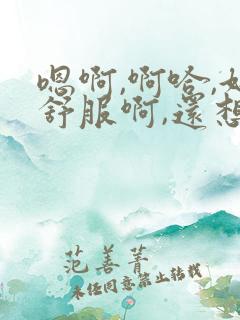 嗯啊,啊哈,
舒服啊,還想
范善菁
未任同意禁止转载